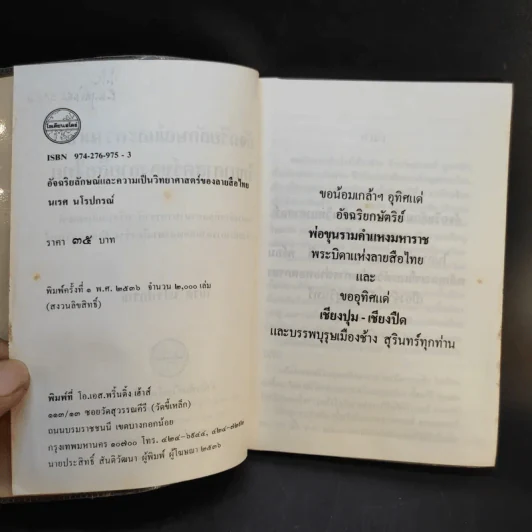 โอเดียนสโตร์
ISBN 974-276-975-3
อัจฉริยลักษณ์และความเป็นวิทยาศาสตร์ของลายสือไทย
นเรศ นโรปกรณ์
ราคา ๓๕ บาท
พิมพ์ครั้งที่ ๑ พ.ศ. ๒๕๓๖ จำนวน ๒,๐๐๐ เล่ม
(สงวนลิขสิทธิ์)
พิมพ์ที่ โอ.เอส.พริ้นติ้ง เฮ้าส์
๑๑๓/๑๓ ซอยวัดสุวรรณคีรี (วัดขี้เหล็ก)
ถนนบรมราชชนนี เขตบางกอกน้อย
กรุงเทพมหานคร ๑๐๗๐๐ โทร.
นายประสิทธิ์ สันติวัฒนา ผู้พิมพ์ ผู้โฆษณา ๒๕๓๖
ขอน้อมเกล้าฯ อุทิศแด่
อัจฉริยกษัตริย์
พ่อขุนรามคำแหงมหาราช
พระบิดาแห่งลายสือไทย
และ
ขออุทิศแด่
เชียงปุม - เชียงปืด
และบรรพบุรุษเมืองช้าง สุรินทร์ทุกท่าน